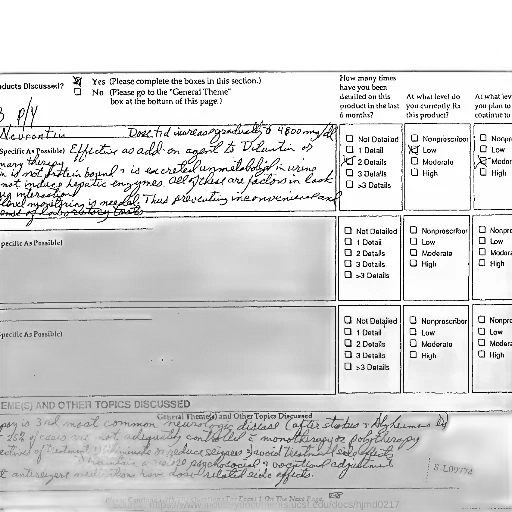 ducts Discussed?
Yes (Please complete the boxes in this section.)
No (Please go to the "General Theme"
box at the bottom of this page.)
How many times
have you been
detailed on this
product in the last
6 months?
At what level do
you currently Rx
this product?
At what lev
you plan to
continue to
P/4
Neurontin Dose tid increase gradually to 4800 mg/day
Specific As Possible) Effective as add-on agent to Dilantin or
mary therapy
in is not protein bound & is excreted unmetabolized in urine
not induce hepatic enzymes. All of these are factors in lack
interaction
level monitoring is needed. Thus preventing inconvenience and
ense of laboratory tests
Not Detailed
1 Detail
2 Details
3 Details
>3 Details
Nonprescriber
Low
Moderate
High
Nonpre
Low
Moder
High
Specific As Possible)
Not Detailed
1 Detail
2 Details
3 Details
>3 Details
Nonprescriber
Low
Moderate
High
Nonpre
Low
Modera
High
Specific As Possible)
Not Detailed
1 Detail
2 Details
3 Details
>3 Details
Nonprescriber
Low
Moderate
High
Nonpre
Low
Modera
High
EME(S) AND OTHER TOPICS DISCUSSED
General Theme(s) and Other Topics Discussed
is 3rd most common neurologic disease (after stroke & Alzheimers
25% of cases are not adequately controlled c monotherapy or polytherapy
ectives of Treatment reduce seizures avoid treatment side effects
Maintain psychosocial & vocational adjustment
antiseizure medication have dose related side effects.
On The Next Page